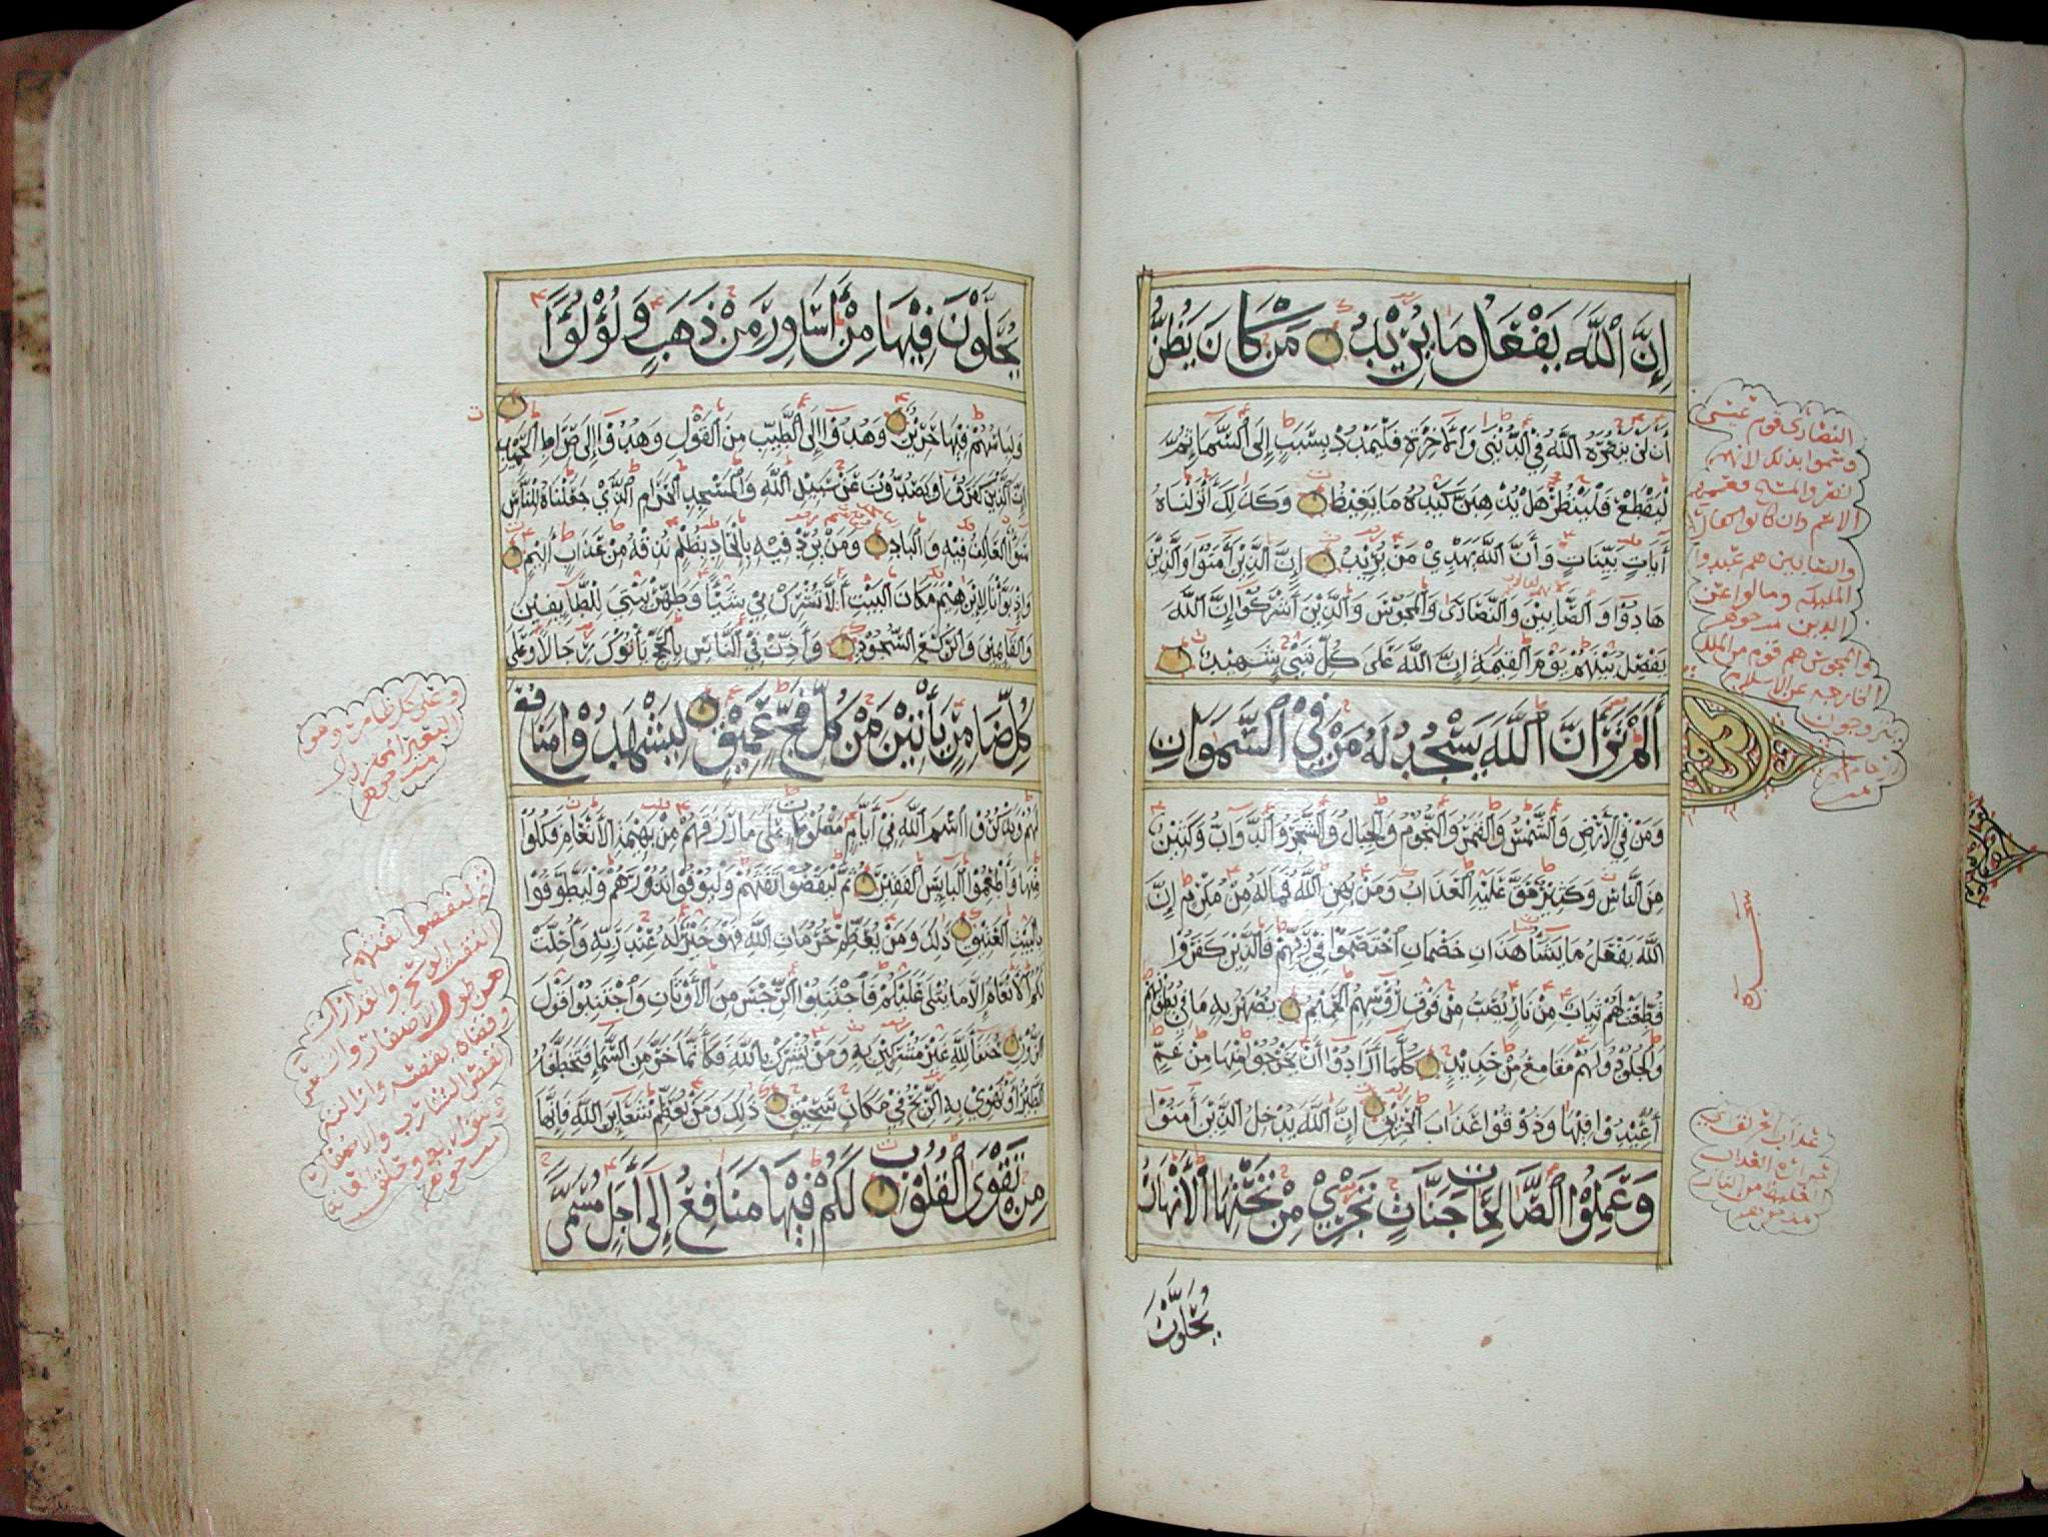 إِنَّ ٱللَّهَ يَفْعَلُ مَا يُرِيْدُ مَنْ كَانَ يَظُنُّ
أَن لَنْ يَنْصُرَهُ اللَّهُ فِي الدُّنْيَى وَالْآخِرَةِ فَلْيَمْدُدْ بِسَبَبٍ إِلَى السَّمَاءِ ثُمَّ
لْيَقْطَعْ فَلْيَنْظُرْ هَلْ يُذْهِبَنَّ كَيْدُهُ مَا يَغِيظُ وَكَذَلِكَ أَنْزَلْنَاهُ
آيَاتٍ بَيِّنَاتٍ وَأَنَّ اللَّهَ يَهْدِيْ مَنْ يُرِيْدُ إِنَّ الَّذِيْنَ آمَنُوْا وَالَّذِيْنَ
هَادُوْا وَالصَّابِيْنَ وَالنَّصَارَى وَالْمَجُوْسَ وَالَّذِيْنَ أَشْرَكُوْا إِنَّ اللَّهَ
يَفْصِلُ بَيْنَهُمْ يَوْمَ الْقِيٰمَةِ إِنَّ اللَّهَ عَلَى كُلِّ شَيْءٍ شَهِيْدٌ
أَلَمْ تَرَ أَنَّ ٱللَّهَ يَسْجُدُ لَهُ مَنْ فِيْ ٱلسَّمٰوَاتِ
وَمَنْ فِي الْأَرْضِ وَالشَّمْسُ وَالْقَمَرُ وَالنُّجُوْمُ وَالْجِبَالُ وَالشَّجَرُ وَالدَّوَابُّ وَكَثِيْرٌ
مِنَ النَّاسِ وَكَثِيْرٌ حَقَّ عَلَيْهِ الْعَذَابُ وَمَنْ يُهِنِ اللَّهُ فَمَا لَهُ مِنْ مُكْرِمٍ إِنَّ
اللَّهَ يَفْعَلُ مَا يَشَاءُ هَذَانِ خَصْمَانِ اخْتَصَمُوْا فِيْ رَبِّهِمْ فَالَّذِيْنَ كَفَرُوْا
قُطِّعَتْ لَهُمْ ثِيَابٌ مِنْ نَارٍ يُصَبُّ مِنْ فَوْقِ رُؤُسِهِمُ الْحَمِيْمُ يُصْهَرُ بِهِ مَا فِيْ بُطُوْنِهِمْ
وَالْجُلُوْدُ وَلَهُمْ مَقَامِعُ مِنْ حَدِيْدٍ كُلَّمَا أَرَادُوْا أَنْ يَخْرُجُوْا مِنْهَا مِنْ غَمٍّ
أُعِيْدُوْا فِيْهَا وَذُوْقُوْا عَذَابَ الْحَرِيْقِ إِنَّ اللَّهَ يُدْخِلُ الَّذِيْنَ آمَنُوْا
وَعَمِلُوْا ٱلصَّالِحَاتِ جَنَّاتٍ تَجْرِيْ مِنْ تَحْتِهَا ٱلْأَنْهَارُ
يُحَلَّوْنَ
النصارى قوم عيسى
وسموا بذلك لانهم
والصابين هم عبدوا
الملىكه ومالوا عن
الدين
والمجوس هم قوم من الملل
الخارجه عن الاسلام
سجدة
عذاب الحريق
يُحَلَّوْنَ فِيْهَا مِنْ أَسَاوِرَ مِنْ ذَهَبٍ وَلُؤْلُؤًا
وَلِبَاسُهُمْ فِيْهَا حَرِيْرٌ وَهُدُوْا إِلَى الطَّيِّبِ مِنَ الْقَوْلِ وَهُدُوْا إِلَى صِرَاطِ الْحَمِيْدِ
إِنَّ الَّذِيْنَ كَفَرُوْا وَيَصُدُّوْنَ عَنْ سَبِيْلِ اللَّهِ وَالْمَسْجِدِ الْحَرَامِ الَّذِيْ جَعَلْنَاهُ لِلنَّاسِ
سَوَاءً الْعَاكِفُ فِيْهِ وَالْبَادِ وَمَنْ يُرِدْ فِيْهِ بِإِلْحَادٍ بِظُلْمٍ نُذِقْهُ مِنْ عَذَابٍ أَلِيْمٍ
وَإِذْ بَوَّأْنَا لِإِبْرَاهِيْمَ مَكَانَ الْبَيْتِ أَلَّا تُشْرِكْ بِيْ شَيْئًا وَطَهِّرْ بَيْتِيَ لِلطَّايِفِيْنَ
وَالْقَايِمِيْنَ وَالرُّكَّعِ السُّجُوْدِ وَأَذِّنْ فِي النَّاسِ بِالْحَجِّ يَأْتُوْكَ رِجَالًا وَعَلَى
كُلِّ ضَامِرٍ يَأْتِيْنَ مِنْ كُلِّ فَجٍّ عَمِيْقٍ لِيَشْهَدُوْا مَنَافِعَ
لَهُمْ وَيَذْكُرُوْا اسْمَ اللَّهِ فِيْ أَيَّامٍ مَعْلُوْمَاتٍ عَلَى مَا رَزَقَهُمْ مِنْ بَهِيْمَةِ الْأَنْعَامِ فَكُلُوْا
مِنْهَا وَأَطْعِمُوْا الْبَايِسَ الْفَقِيْرَ ثُمَّ لْيَقْضُوْا تَفَثَهُمْ وَلْيُوْفُوْا نُذُوْرَهُمْ وَلْيَطَّوَّفُوْا
بِالْبَيْتِ الْعَتِيْقِ ذَلِكَ وَمَنْ يُعَظِّمْ حُرُمَاتِ اللَّهِ فَهُوَ خَيْرٌ لَهُ عِنْدَ رَبِّهِ وَأُحِلَّتْ
لَكُمُ الْأَنْعَامُ إِلَّا مَا يُتْلَى عَلَيْكُمْ فَاجْتَنِبُوْا الرِّجْسَ مِنَ الْأَوْثَانِ وَاجْتَنِبُوْا قَوْلَ
الزُّوْرِ حُنَفَاءَ لِلَّهِ غَيْرَ مُشْرِكِيْنَ بِهِ وَمَنْ يُشْرِكْ بِاللَّهِ فَكَأَنَّمَا خَرَّ مِنَ السَّمَاءِ فَتَخْطَفُهُ
الطَّيْرُ أَوْ تَهْوِيْ بِهِ الرِّيْحُ فِيْ مَكَانٍ سَحِيْقٍ ذَلِكَ وَمَنْ يُعَظِّمْ شَعَايِرَ اللَّهِ فَإِنَّهَا
مِنْ تَقْوَى ٱلْقُلُوْبِ لَكُمْ فِيْهَا مَنَافِعُ إِلَى أَجَلٍ مُسَمًّى
وعلى كل ضامر وهو
البعير
ثم ليقضوا تفثهم